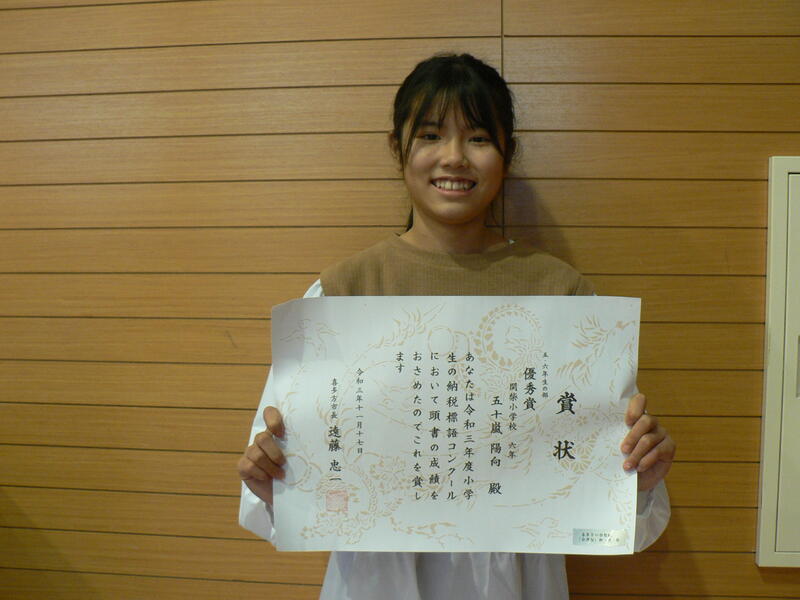 賞状
五・六年生の部
優秀賞
関柴小学校 六年
五十嵐 陽向 殿
あなたは令和三年度小学
生の納税標語コンクール
において頭書の成績を
おさめたのでこれを賞し
ます
令和三年十一月十七日
喜多方市長 遠藤 忠一